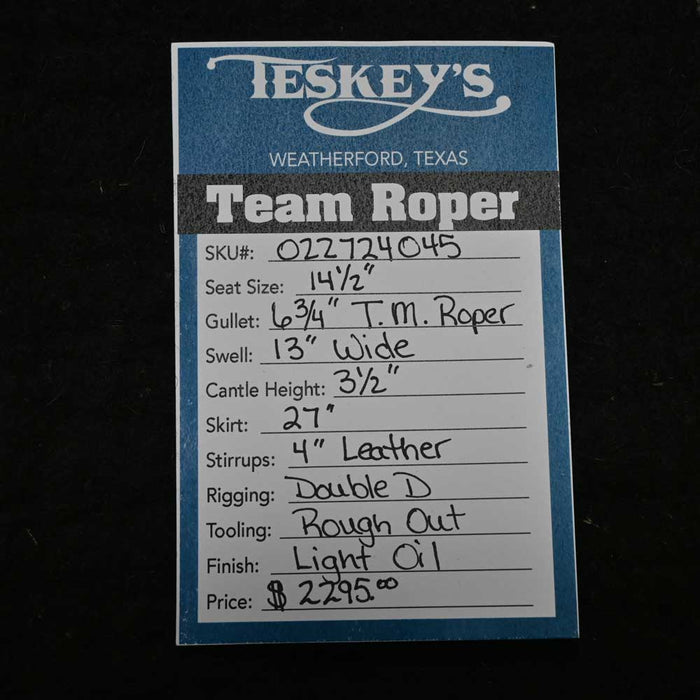 TESKEY'S
WEATHERFORD, TEXAS
Team Roper
SKU#: 022724045
Seat Size: 14½"
Gullet: 6¾" T.M. Roper
Swell: 13" Wide
Cantle Height: 3½"
Skirt: 27"
Stirrups: 4" Leather
Rigging: Double D
Tooling: Rough Out
Finish: Light Oil
Price: $ 2295.00